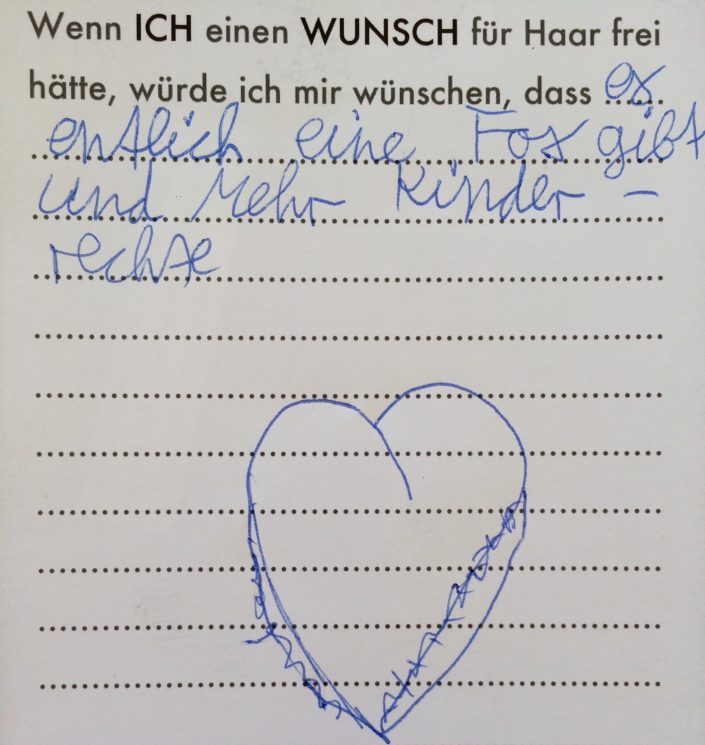 Wenn ICH einen WUNSCH für Haar frei
hätte, würde ich mir wünschen, dass es
entlich eine Fos gibt
und Mehr Kinder –
rechte